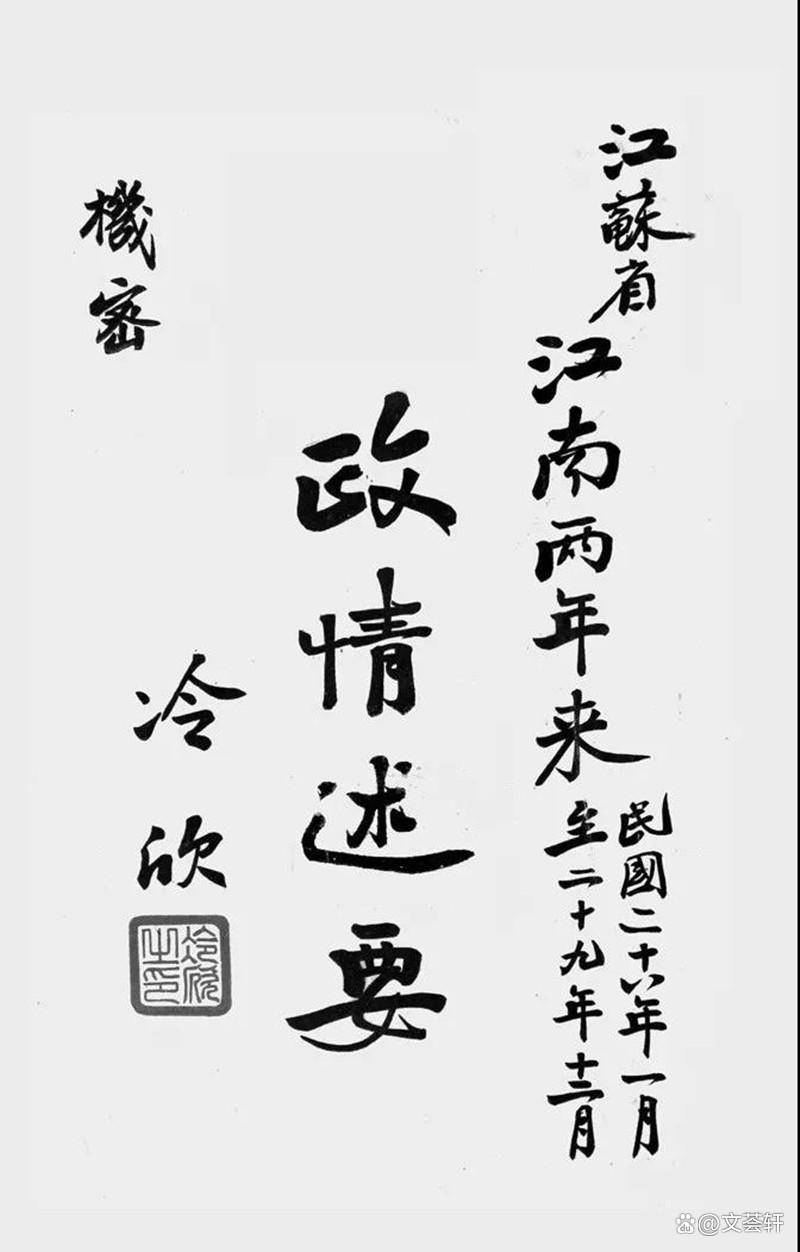 江蘇省
江南兩年来
民國二十八年一月
至二十九年十二月
政情述要
冷欣
冷欣之印
機密
@文荟轩